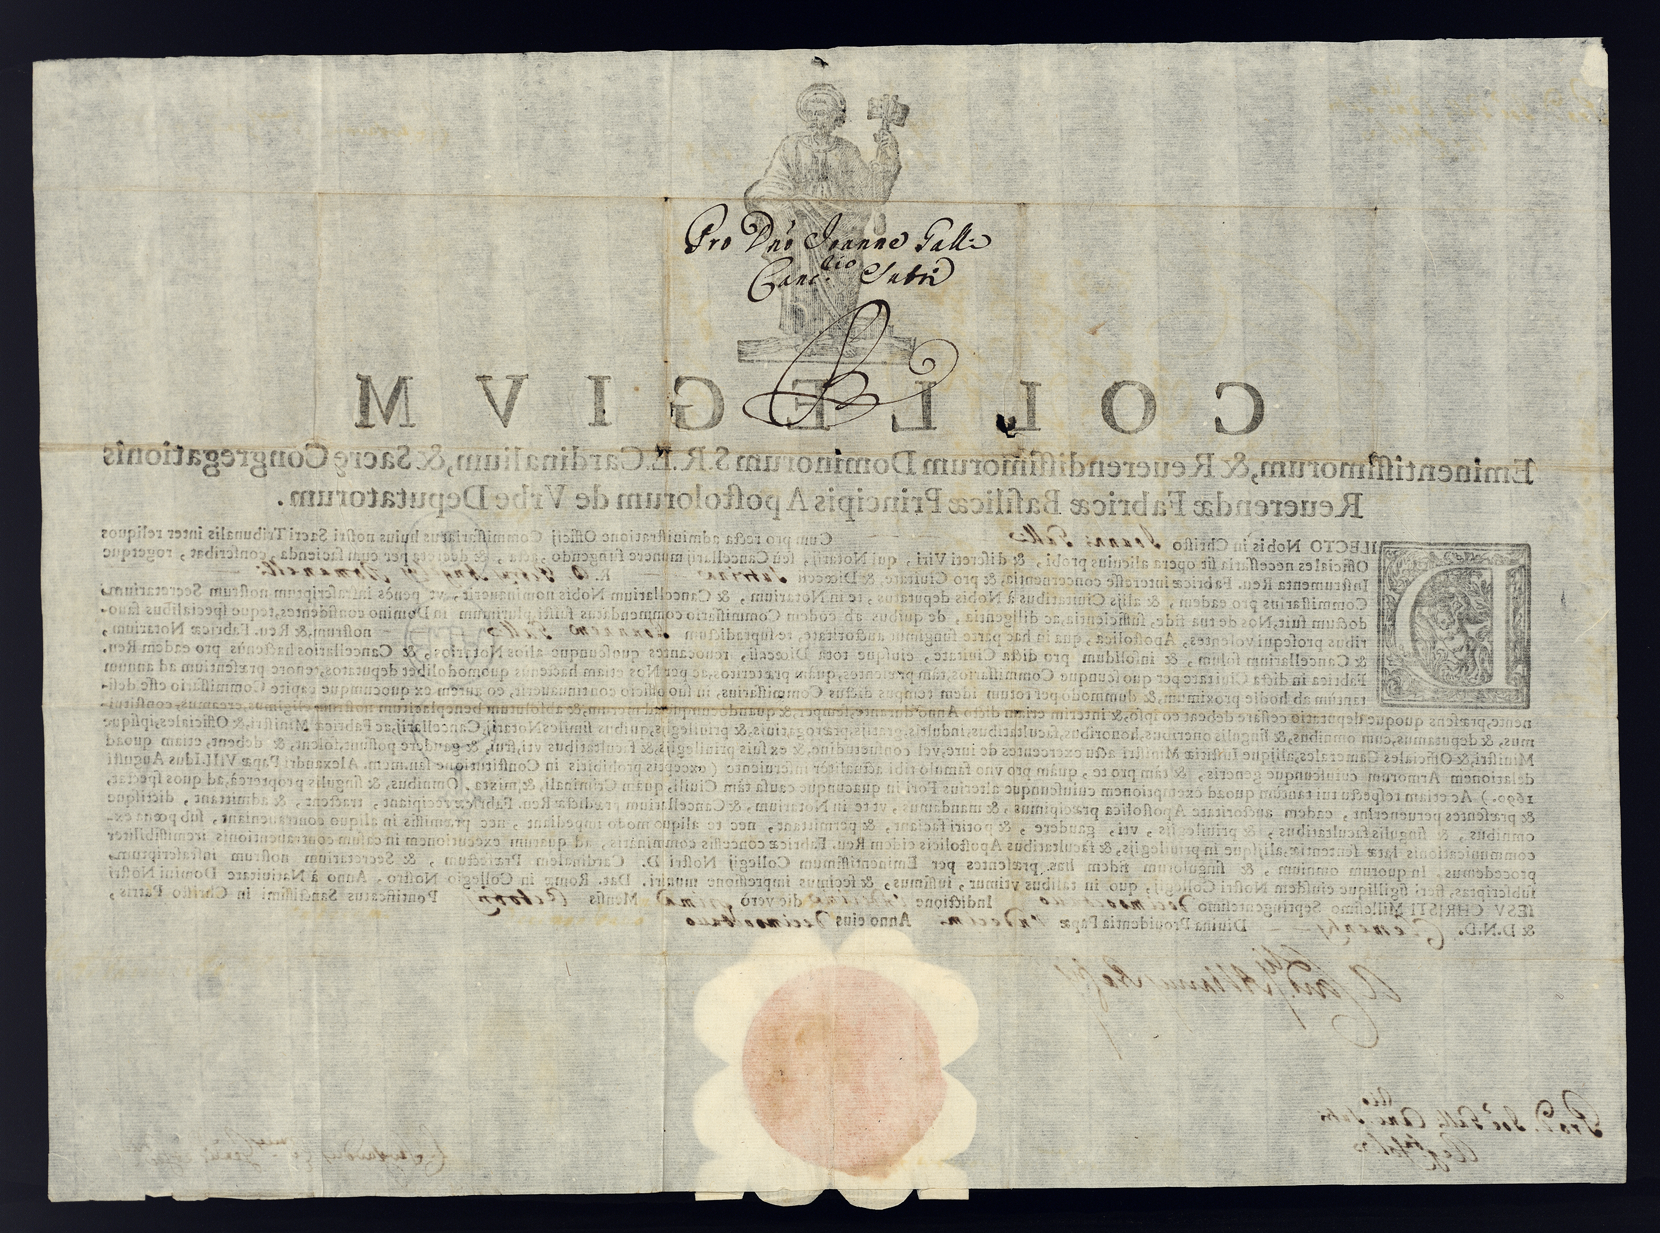 Pro Dño Joanne Galli
Canc.rio Sutrii
COLLEGIVM
Eminentissimorum, & Reuerendissimorum Dominorum S.R.E. Cardinalium, & Sacrę Congregationis
Reuerendæ Fabricæ Basilicæ Principis Apostolorum de Vrbe Deputatorum.
DILECTO Nobis in Christo Joanni Galli Cum pro recta administratione Officij Commissariatus huius nostri Sacri Tribunalis inter reliquos
Officiales necessaria sit opera alicuius probi, & discreti Viri, qui Notarij, seù Cancellarij munere fungendo, acta, & decreta per eum facienda, conscribat, rogetque
Instrumenta Reu. Fabricæ interesse concernentia, & pro Ciuitate, & Diœcesi Sutrina R. D.
Commissarius pro eadem, & alijs Ciuitatibus à Nobis deputatus, te in Notarium, & Cancellarium Nobis nominauerit, vt penès infrascriptum nostrum Secretarium,
doctum fuit, Nos de tua fide, sufficientia, ac diligentia, de quibus ab eodem Commissario commendatus fuisti, plurimùm in Domino confidentes, teque specialibus fauo-
ribus prosequi volentes, Apostolica, qua in hac parte fungimur auctoritate, te supradictum Joannem Galli nostrum, & Reu. Fabricæ Notarium,
& Cancellarium solum, & insolidum pro dicta Ciuitate, eiusque tota Diœcesi, reuocantes quoscunque alios Notarios, & Cancellarios hactenùs pro eadem Reu.
Fabrica in dicta Ciuitate per quoscunque Commissarios, tàm præsentes, quàm præteritos, ac per Nos etiam hactenùs quomodolibet deputatos, tenore præsentium ad annum
tantùm ab hodie proximum, & dummodo per totum idem tempus dictus Commissarius, in suo officio continuauerit, eo autem ex quocumque capite Commissario esse desi-
nente, præsens quoque deputatio cessare debeat eo ipso, & interim etiam dicto Anno durante, semper, & quandocumque ad nostrum, & absolutum beneplacitum nostrum eligimus, creamus, constitui-
mus, & deputamus, cum omnibus, & singulis oneribus, honoribus, facultatibus, indultis, gratijs, prærogatiuis, & priuilegijs, quibus similes Notarij, Cancellarij, ac Fabricæ Ministri, & Officiales, ipsique
Ministri, & Officiales Camerales, alijque Iustitiæ Ministri actu exercentes de iure, vel consuetudine, & ex suis priuilegijs, & facultatibus vti, frui, & gaudere possunt, solent, & debent, etiam quoad
delationem Armorum cuiuscunque generis, & tàm pro te, quàm pro vno famulo tibi actualiter inseruiente (exceptis prohibitis in Constitutione sanctæ mem. Alexandri Papæ VIII. Idus Augusti
1690.) Ac etiam respectu tui tantùm quoad exemptionem cuiuscunque alterius Fori in quacunque causa tàm Ciuili, quàm Criminali, & mixta. Omnibus, & singulis proptereà, ad quos spectat,
& præsentes peruenerint, eadem auctoritate Apostolica præcipimus, & mandamus, vt te in Notarium, & Cancellarium prædictæ Reu. Fabricæ recipiant, tractent, & admittant, dictisque
omnibus, & singulis facultatibus, & priuilegijs, vti, gaudere, & potiri faciant, & permittant, nec te aliquo modo impediant, nec præmissis in aliquo contraueniant, sub pœna ex-
communicationis latæ sententiæ, alijsque in priuilegijs, & facultatibus Apostolicis eidem Reu. Fabricæ concessis comminatis, ad quarum executionem in casum contrauentionis irremissibiliter
procedemus. In quorum omnium, & singulorum fidem has præsentes per Eminentissimum Collegij Nostri D. Cardinalem Præfectum, & Secretarium nostrum infrascriptum,
subscriptas, fieri sigillique eiusdem Nostri Collegij, quo in talibus vtimur, iussimus, & fecimus impressione muniri. Dat. Romæ in Collegio Nostro. Anno à Natiuitate Domini Nostri
IESV CHRISTI Millesimo Septingentesimo Decimooctauo Indictione Vndecima die verò prima Mensis Octobris Pontificatus Sanctissimi in Christo Patris,
& D.N.D. Clementis Diuina Prouidentia Papæ Vndecimi Anno eius Decimooctauo
Pro D. Joe Galli Canc.rio